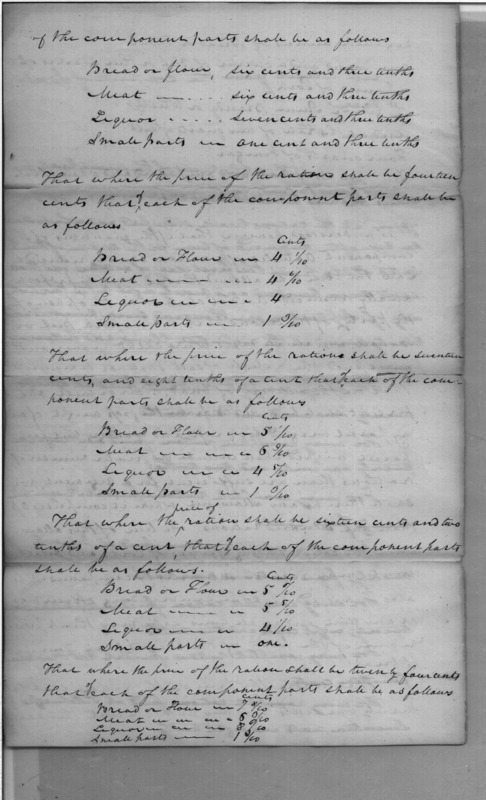 of the component parts shall be as follows
Bread or flour, six cents and three tenths
Meat — . . . . six cents and three tenths
Liquor . . . . . Seven cents and three tenths
Small parts in one cent and three tenths
That where the price of the ration shall be fourteen
cents that of each of the component parts shall be
as follows
Cents
Bread or Flour 4
Meat 4
Liquor 4
Small parts 1
That where the price of the rations shall be seventeen
cents, and eight tenths of a cent that of each of the com-
ponent parts shall be as follows
Cents
Bread or Flour 5
Meat 6
Liquor 4
Small parts 1
price of
That where the ration shall be sixteen cents and two
tenths of a cent that of each of the component parts
shall be as follows.
Cents
Bread or Flour 5
Meat 5
Liquor 4 1/10
Small parts one.
That where the price of the ration shall be twenty four cents
that of each of the component parts shall be as follows
Cents
Bread or Flour 7
Meat
Liquor
Small parts 1